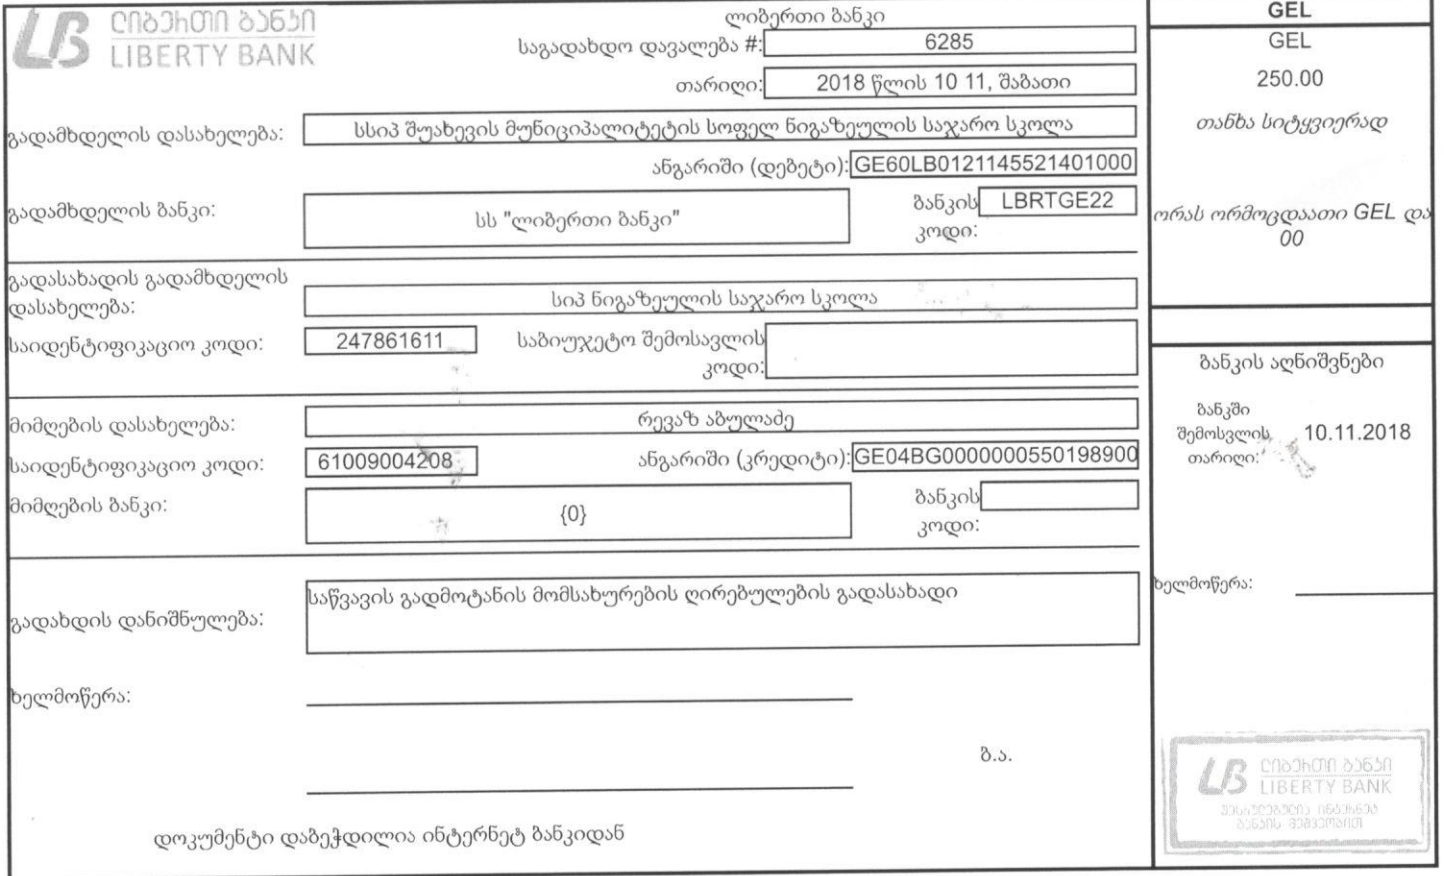 ლიბერთი ბანკი
LIBERTY BANK
ლიბერთი ბანკი
საგადახდო დავალება #: 6285
თარიღი: 2018 წლის 10 11, შაბათი
გადამხდელის დასახელება: სსიპ შუახევის მუნიციპალიტეტის სოფელ ნიგაზეულის საჯარო სკოლა
ანგარიში (დებეტი): GE60LB0121145521401000
გადამხდელის ბანკი: სს "ლიბერთი ბანკი"
ბანკის კოდი: LBRTGE22
გადასახადის გადამხდელის
დასახელება: სიპ ნიგაზეულის საჯარო სკოლა
საიდენტიფიკაციო კოდი: 247861611 საბიუჯეტო შემოსავლის
კოდი:
მიმღების დასახელება: რევაზ აბულაძე
საიდენტიფიკაციო კოდი: 61009004208 ანგარიში (კრედიტი): GE04BG0000000550198900
მიმღების ბანკი: {0}
ბანკის
კოდი:
გადახდის დანიშნულება: საწვავის გადმოტანის მომსახურების ღირებულების გადასახადი
ხელმოწერა:
ბ.ა.
დოკუმენტი დაბეჭდილია ინტერნეტ ბანკიდან
GEL
GEL
250.00
თანხა სიტყვიერად
ორას ორმოცდაათი GEL და
00
ბანკის აღნიშვნები
ბანკში
შემოსვლის 10.11.2018
თარიღი:
ხელმოწერა:
ლიბერთი ბანკი
LIBERTY BANK
შესრულებულია ინტერნეტ
ბანკის მეშვეობით